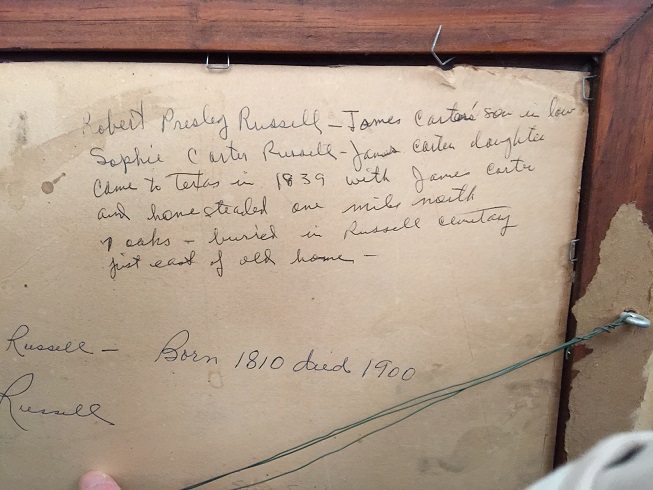 Robert Presley Russell - James Carter's son in law
Sophie Carter Russell - James carter daughter
came to Texas in 1839 with James Carter
and homesteaded one mile north
oaks - buried in Russell cemetary
just east of old home -
Russell - Born 1810 died 1900
Russell